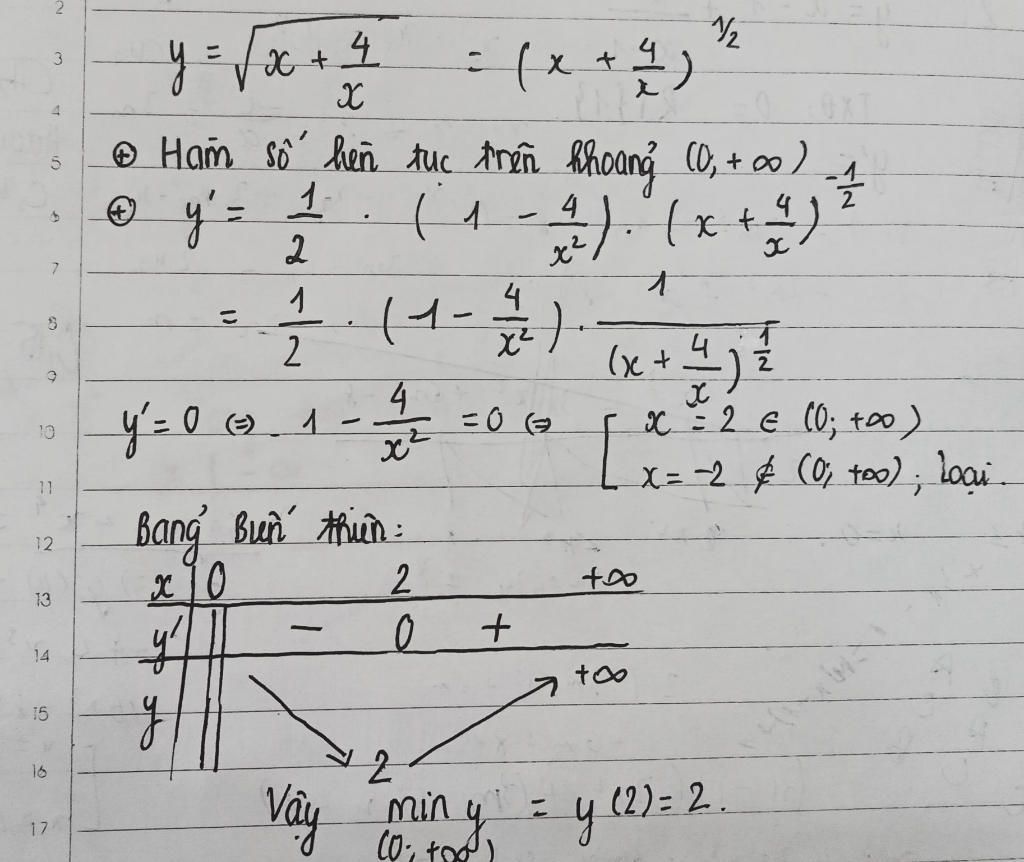 2
3 y = √(x + 4/x) = (x + 4/x)^1/2
4
5 ⊕ Hàm số liên tục trên khoảng (0; +∞)
6 ⊕ y' = 1/2 · (1 - 4/x²) · (x + 4/x)^-1/2
7
8 = 1/2 · (1 - 4/x²) · 1/(x + 4/x)^1/2
9
10 y' = 0 ⇔ 1 - 4/x² = 0 ⇔ [ x = 2 ∈ (0; +∞)
11 x = -2 ∉ (0; +∞); loại.
12 Bảng Biến thiên:
13 x 0 2 +∞
14 y' - 0 +
+∞
15 y
16 2
17 Vậy min y = y(2) = 2.
(0; +∞)